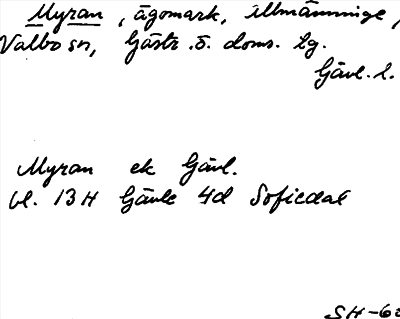 Myran, ägomark, Illmänninge,
Valbo sn, Gästr. ö. doms. lg.
Gävl. l.
Myran ek Gävl.
bl. 13H Gävle 4d Sofiedal
SH-62